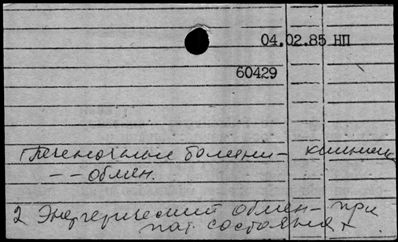 04.02.85 НП
60429
Печеночные болезни - клиника
- - обмен.
2 Энергетический обмен - при
пат. состояния х